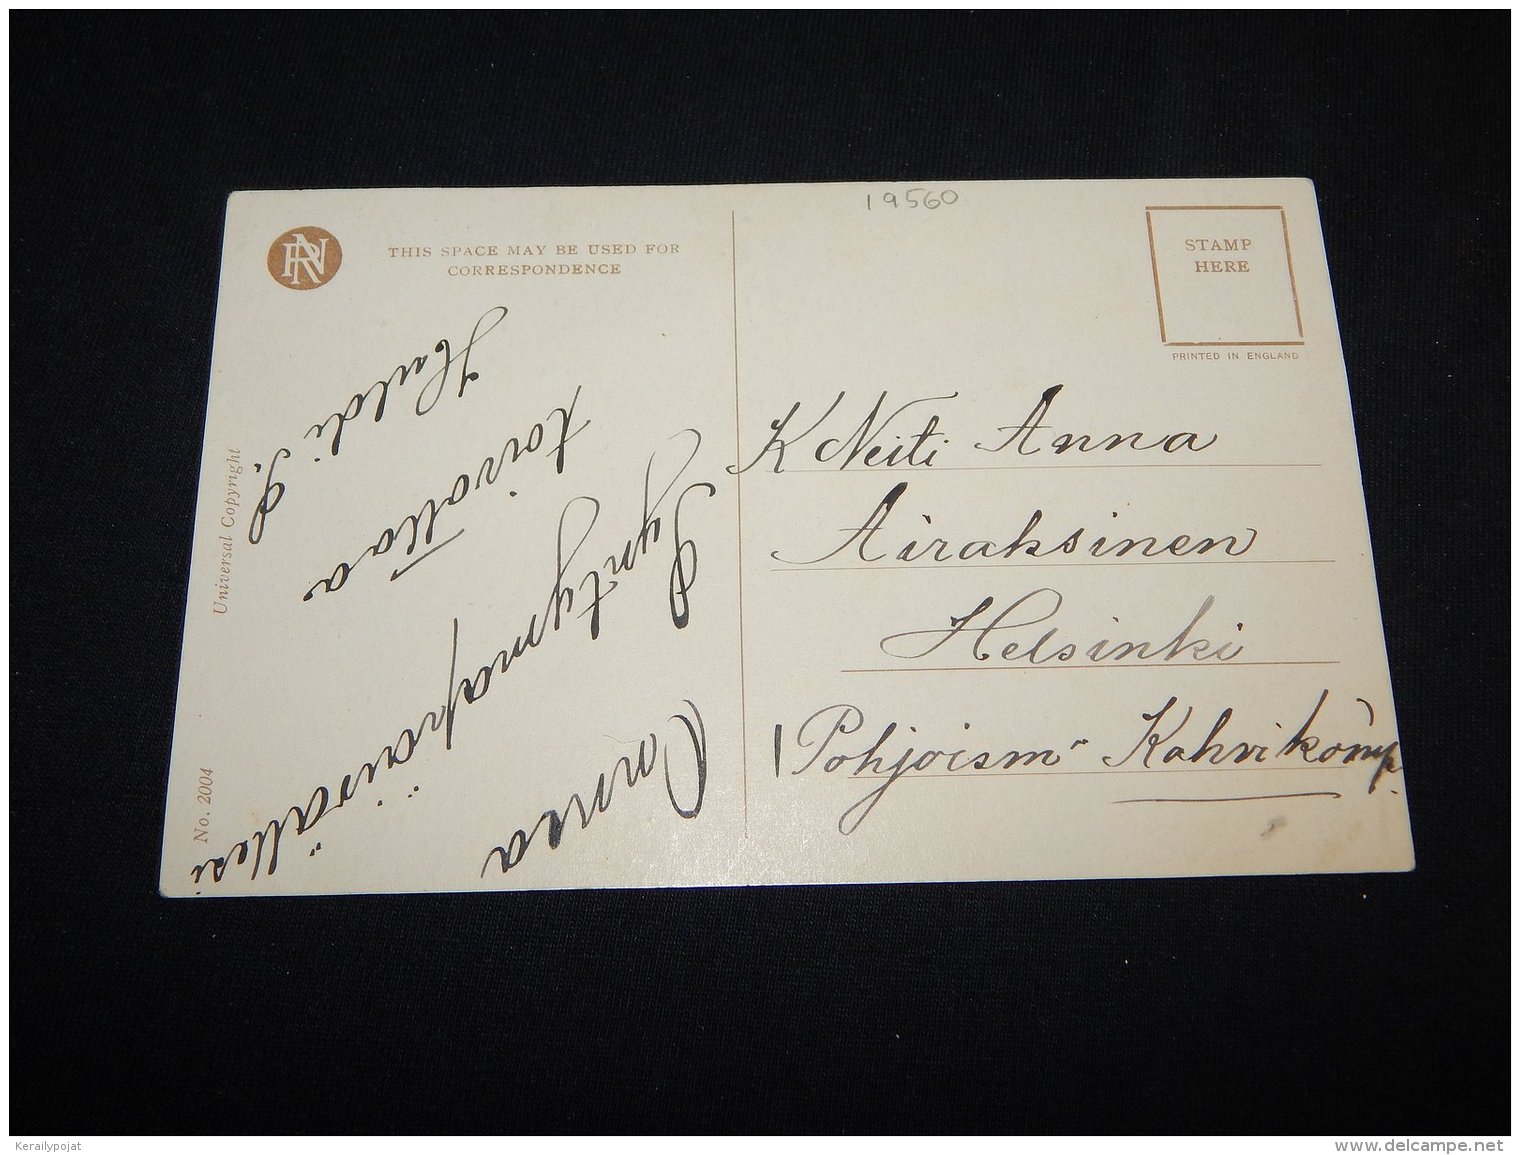 19560
RN
THIS SPACE MAY BE USED FOR
CORRESPONDENCE
STAMP
HERE
PRINTED IN ENGLAND
Onnea
Syntymäpäivällesi
toivottaa
Huldi S.
K Neiti Anna
Airaksinen
Helsinki
Pohjoism" Kahvikomp.
Universal Copyright
No. 2004
Kerailypojat
www.delcampe.net